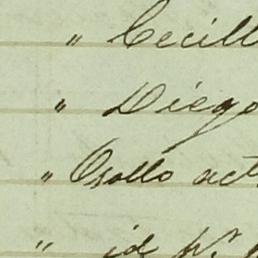 " Cecill
" Diego
" Osollo act
" id